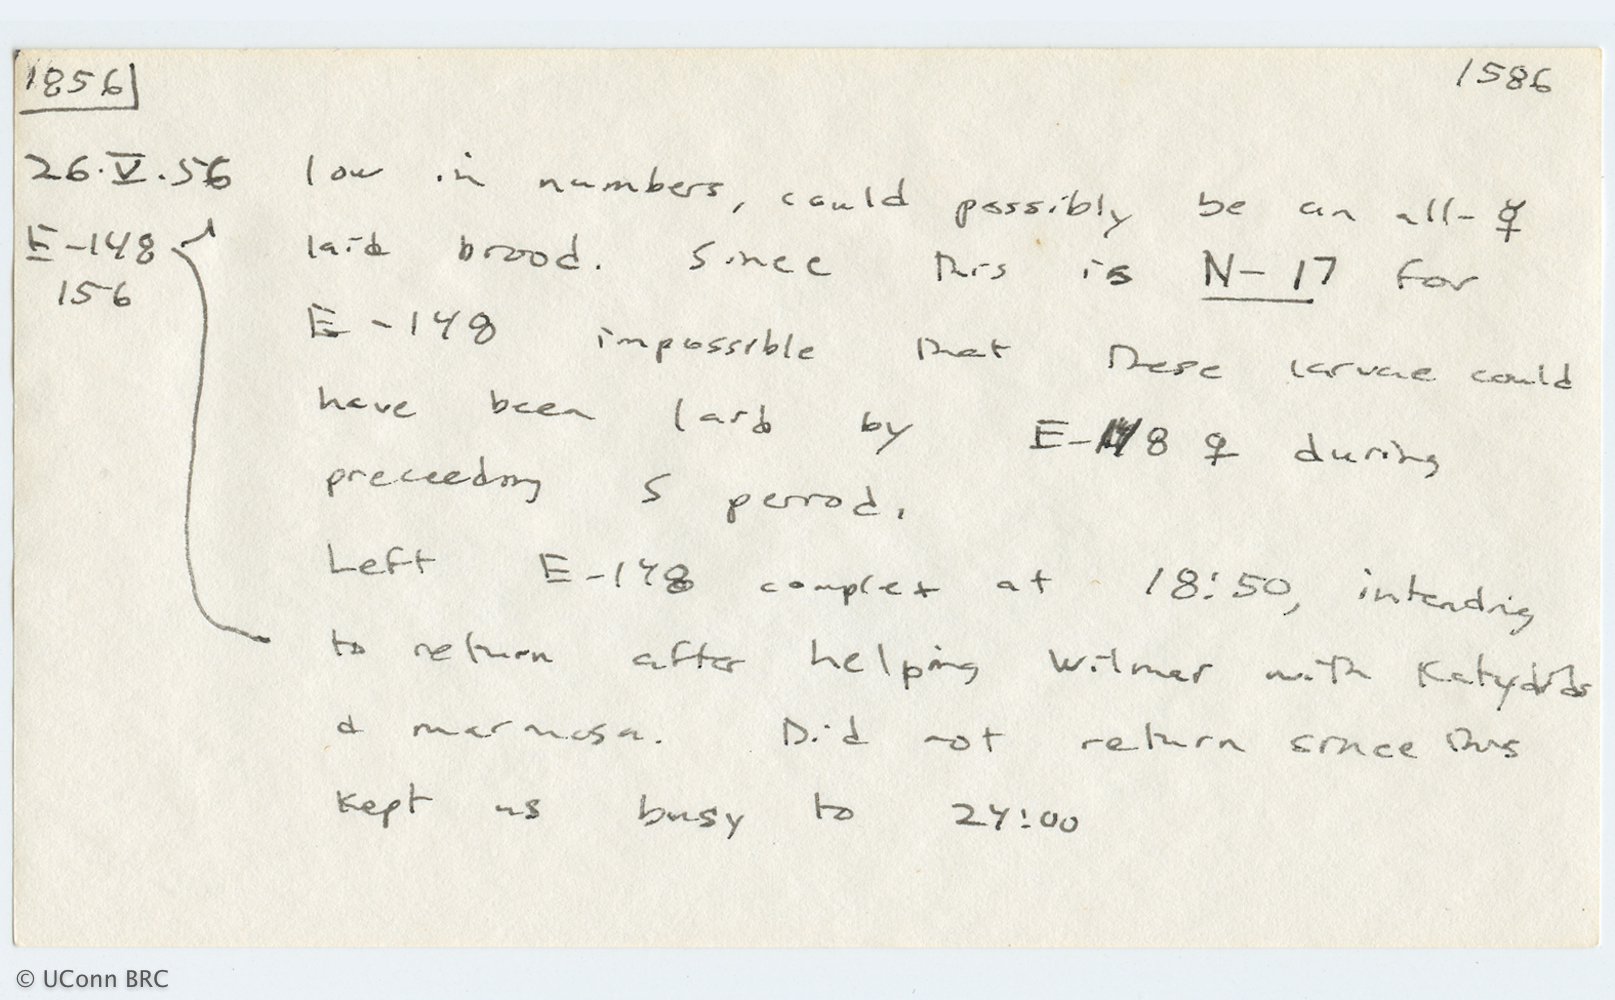 1856
1586
26.V.56 low in numbers, could possibly be an all-☿
E-148 laid brood. Since this is N-17 for
156
E-148 impossible that these larvae could
have been laid by E-148 ♀ during
preceeding S period.
Left E-148 complex at 18:50, intending
to return after helping Wilmar with Katydids
& marmosa. Did not return since this
kept us busy to 24:00
© UConn BRC